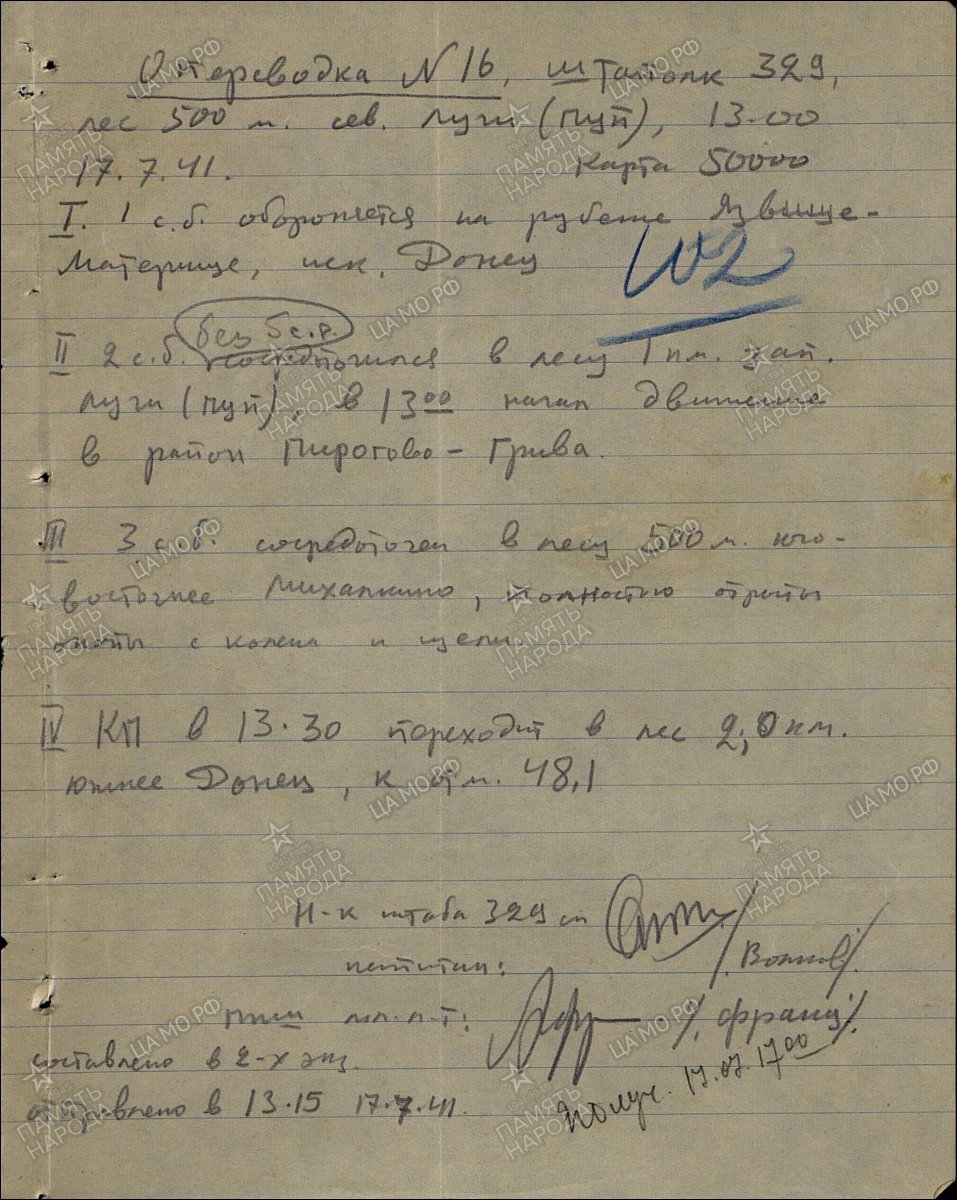 Оперсводка N 16, штаполк 329,
лес 500 м. сев. Луги (пуп), 13.00
17.7.41. Карта 50000
I. 1 с.б. обороняется на рубеже Язвище-
Материще, иск. Донец
102
без 5 с.р.
II 2 с.б. сосредоточился в лесу 1 км. зап.
Луги (пуп). в 13 00 начал движение
в район Пирогово - Грива.
III 3 с.б. сосредоточен в лесу 500 м. юго-
восточнее Михалкино, полностью отрыты
окопы с колена и щели.
IV КП в 13.30 переходит в лес 2,0 км.
южнее Донец, к отм. 48,1
Н-к штаба 329 сп
капитан: /Волков/.
пнш мл. л-т: /Франц/.
составлено в 2-х экз.
отправлено в 13.15 17.7.41.
Получ. 17.07. 17 00
ПАМЯТЬ НАРОДА
ЦАМО.РФ